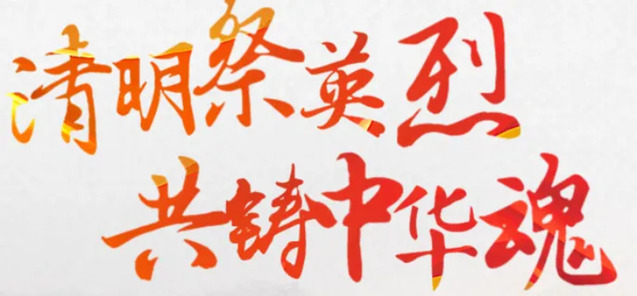 清明祭英烈
共铸中华魂